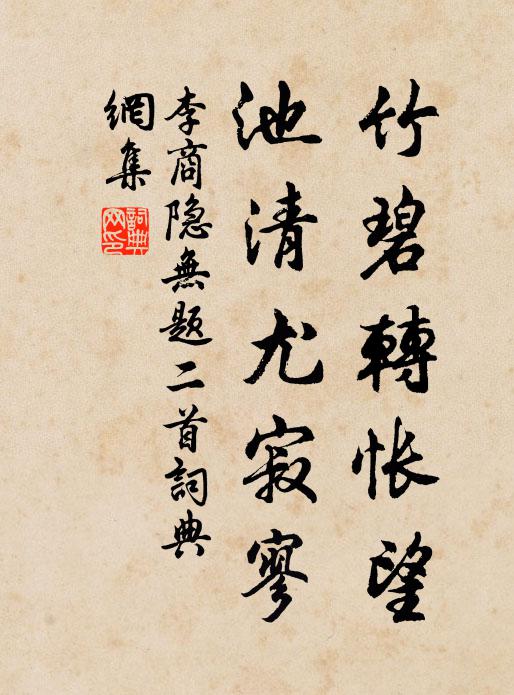 竹碧轉怅望
池清尤寂寥
李商隐無題二首詞典
網集
詞典網印